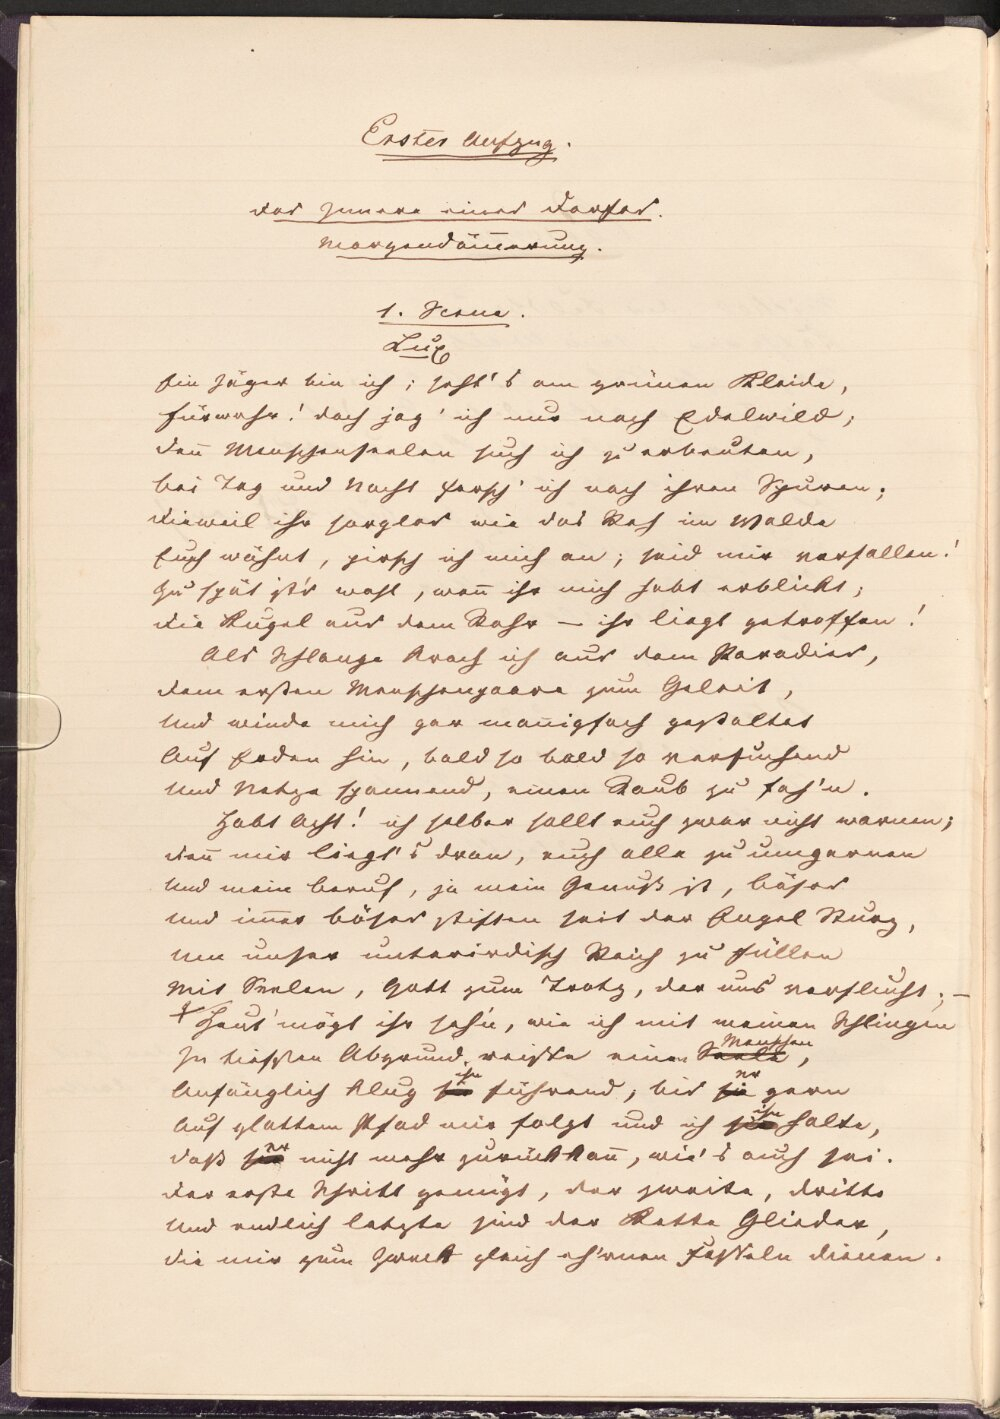 Erster Aufzug.
Das Innere eines Dorfes.
Morgendäm̅erung.
1. Scene.
Lux
Ein Jäger bin ich; seht's am grünen Kleide,
Fürwahr! doch jag' ich nur nach Edelwild;
Den̅ Menschenseelen such ich zu erbeuten,
Bei Tag und Nacht forsch' ich nach ihren Spuren;
Dieweil ihr sorglos wie das Reh im Walde
Euch wähnt, pirsch ich mich an; seid mir verfallen!
Zu spät ist's wohl, wen̅ ihr mich habt erblickt;
Die Kugel aus dem Rohr — ihr liegt getroffen!
Als Schlange kroch ich aus dem Paradies,
Dem ersten Menschenpaare zum Geleit,
Und winde mich gar man̅igfach gestaltet
Auf Erden hin, bald so bald so versuchend
Und Netze spannend, einen Raub zu fah'n.
Habt Acht! ich selber sollt euch zwar nicht warnen;
Den̅ mir liegt's dran, euch alle zu umgarnen
Und mein Beruf, ja mein Genuß ist, Böses
Und im̅er Böses stiften seit der Engel Sturz,
Um unser unterirdisch Reich zu füllen
Mit Seelen, Gott zum Trotz, der uns verflucht; —
Heut' mögt ihr seh'n, wie ich mit meinen Schlingen
In tiefsten Abgrund reiße einen Seele Menschen,
Anfänglich klug sie ihn führend, bis sie er gern
Auf glattem Pfad mir folgt und ich sie ihn halte,
Daß sie er nicht mehr zurück kan̅, wie's auch sei.
Der erste Schritt genügt, der zweite, dritte
Und endlich letzte sind der Kette Glieder,
Die mir zum Zweck gleich eh'rnen Fesseln dienen.